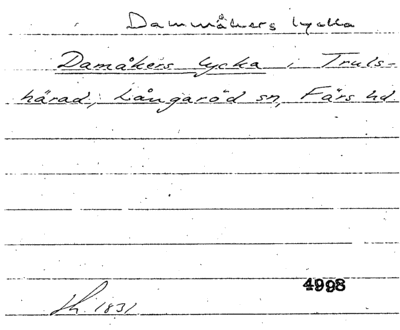 Dammåkers lycka
Damåkers lycka i Truls-
härad, Långaröd sn, Färs hd.
4998
Lh. 1831